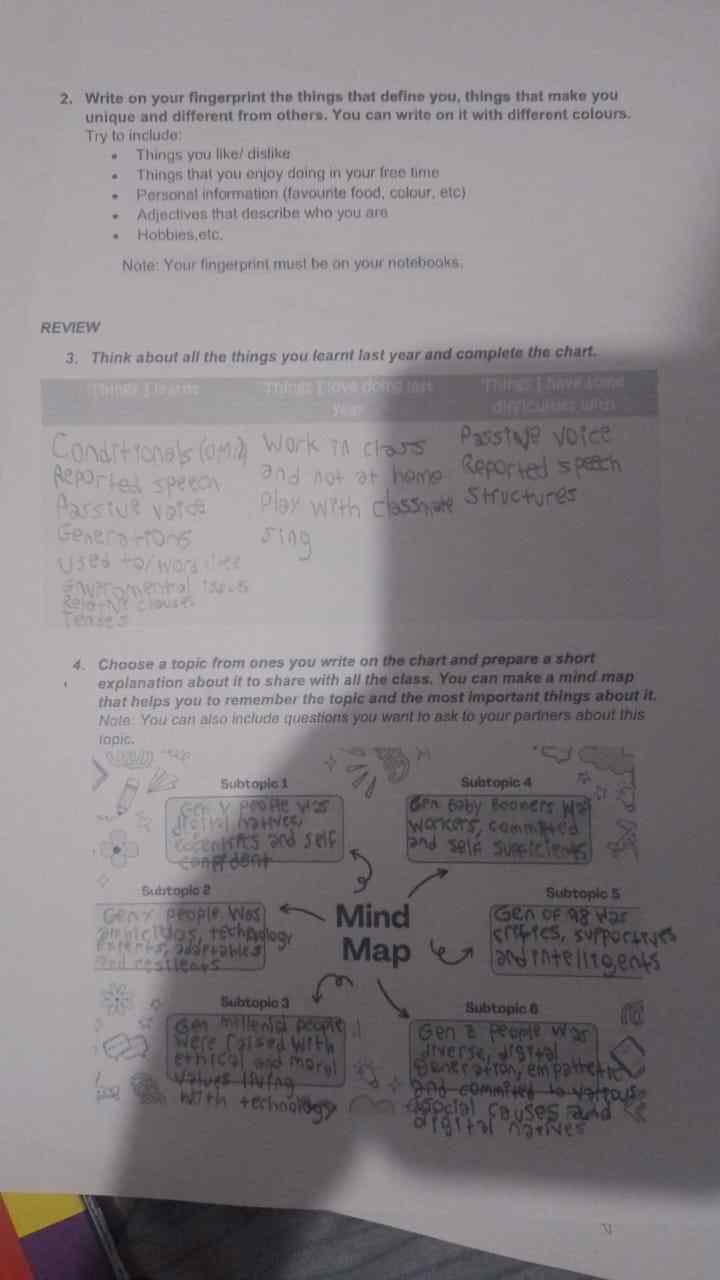 2. Write on your fingerprint the things that define you, things that make you
unique and different from others. You can write on it with different colours.
Try to include:
• Things you like/ dislike
• Things that you enjoy doing in your free time
• Personal information (favourite food, colour, etc)
• Adjectives that describe who you are
• Hobbies,etc.
Note: Your fingerprint must be on your notebooks.
REVIEW
3. Think about all the things you learnt last year and complete the chart.
Things I learnt
Conditionals
Reported speech
Passive voice
Generations
Used to/
Relative clauses
Tenses
Things I love doing last
year
Work in class
and not at home
Play with classmate
sing
Things I have some
difficulties with
Passive voice
Reported speech
Structures
4. Choose a topic from ones you write on the chart and prepare a short
explanation about it to share with all the class. You can make a mind map
that helps you to remember the topic and the most important things about it.
Note: You can also include questions you want to ask to your partners about this
topic.
Mind
Map
Subtopic 1
Gen Y people was
digital natives,
and self
confident
Subtopic 2
people was
technology
and
Subtopic 3
Gen millenial people
were raised with
ethical and moral
values living
with technology
Subtopic 4
Gen Baby Boomers was
workers, committed
and self sufficients
Subtopic 5
Gen of 98 was
critics, supportives
and intelligents
Subtopic 6
Gen Z people was
diverse, digital
Generation, empathetic
and commited to various
social causes and
digital natives